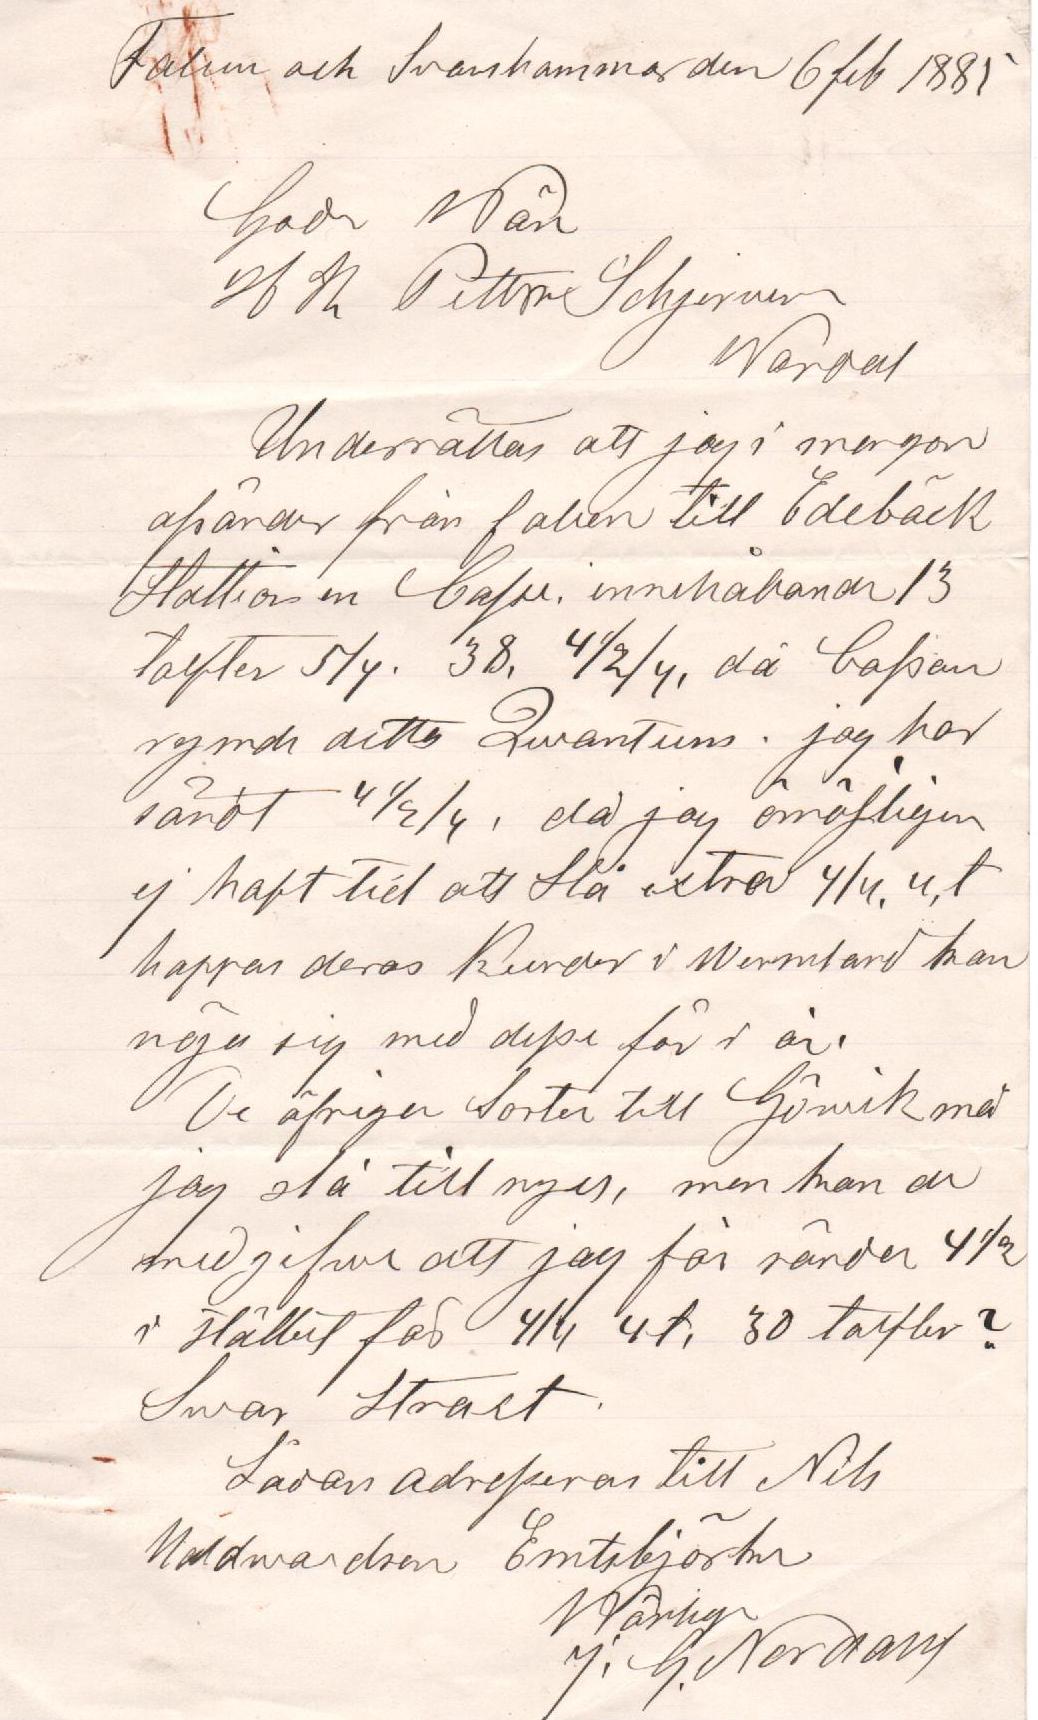 Falun och Svanshammar den 6 feb 1885
Gode Vän
H H Petter Schjerven
Nordal
Underrättas att jag i morgon
afsänder från falun till Edebäck
Stattion en Casse. innehålande 13
tolfter 5/4. 38. 4 1/2/4, då Cassan
rymde detta Qwantum. jag har
sändt 4 1/2/4, då jag omöjligen
ej haft tid att Slå extra 4/4. 4,t
hoppas deras Kunder i Wermland kan
nöja sig med desse för i år.
De öfriga Sorter till Göwik må
jag slå till nyes, men kan de
medgifwa att jag får sända 4 1/2
i stället för 4/4 4t. 30 tolfter?
Swar Stract.
Lådan adresseras till Nils
Haldwardsen
Wänligen
J. G. Nordahl